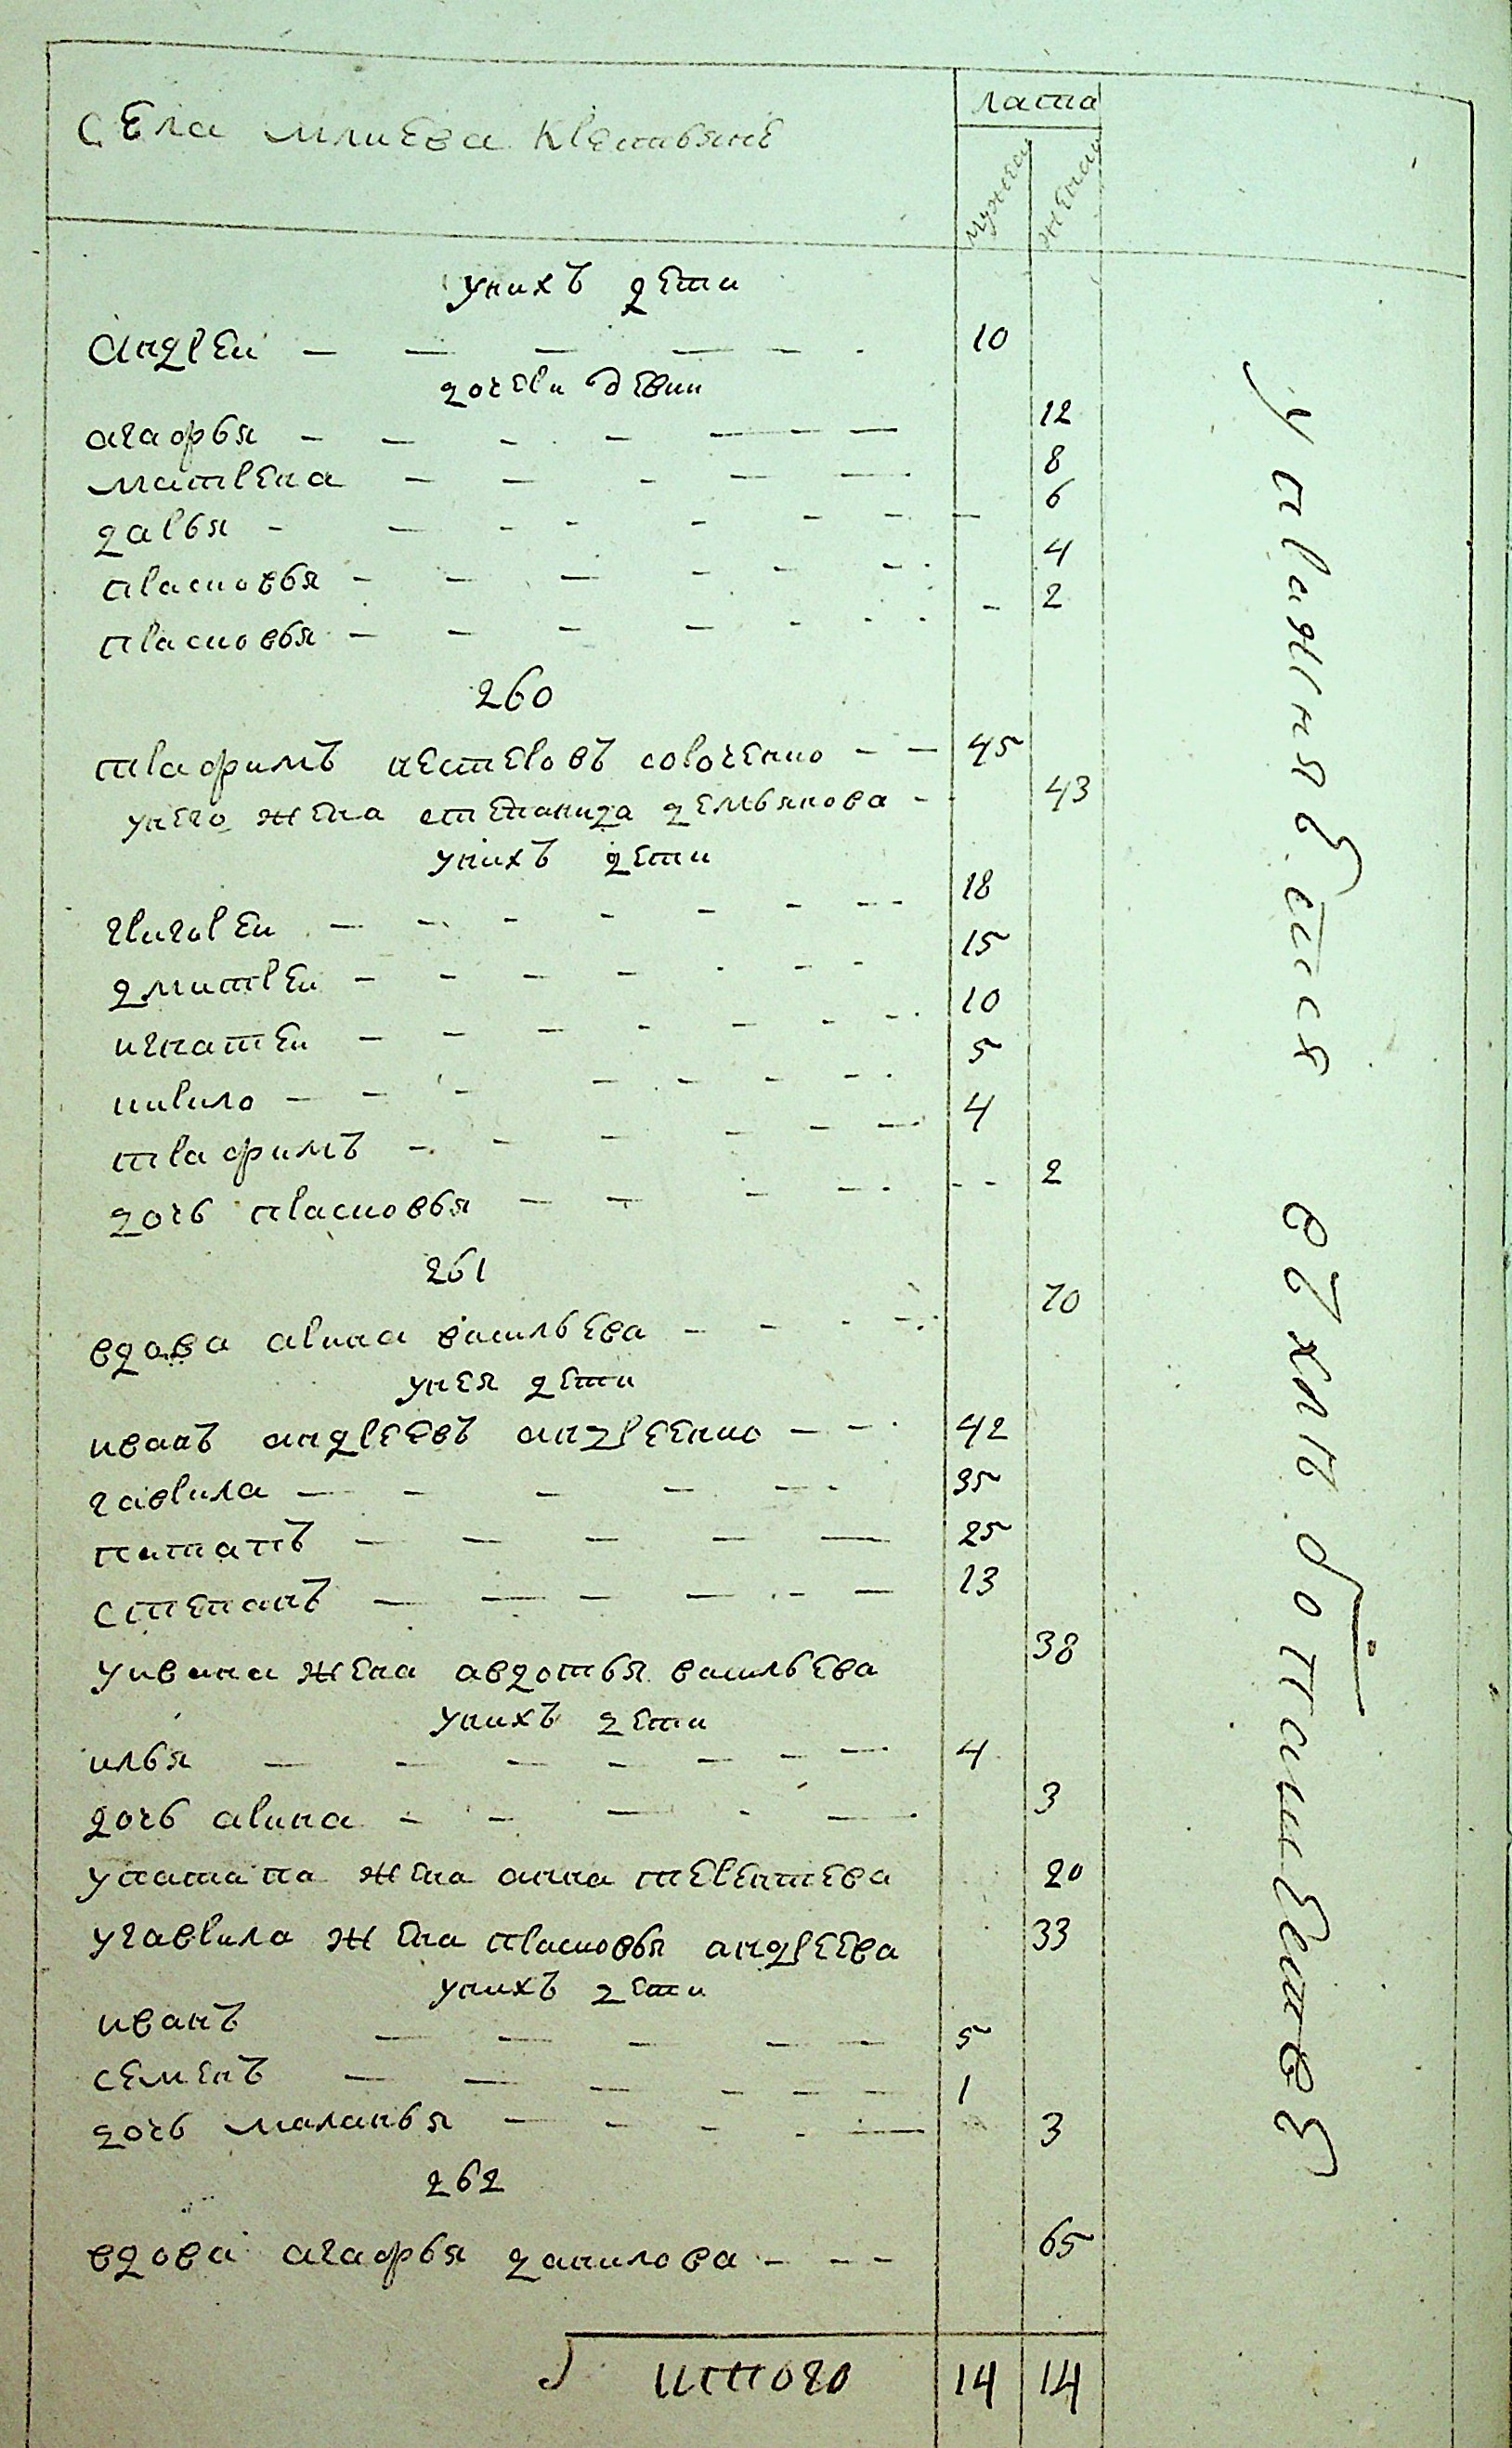 села млиева крестьяне
лата
мужска
женска
у нихъ дети
андреи 10
дочери девки
агафья 12
матрена 8
дарья 6
прасковья 4
прасковья 2
260
трафимъ нестеровъ сороченко 45
у него жена степанида демьянова 43
у нихъ дети
григореи 18
дмитреи 15
игнатеи 10
кирило 5
трафимъ 4
дочь прасковья 2
261
вдова арина васильева 70
у нея дети
иванъ андреевъ андреенко 42
гаврила 35
патапъ 25
степанъ 13
у ивана жена авдотья васильева 38
у нихъ дети
илья 4
дочь арина 3
у патапа жена анна терентева 20
у гаврила жена прасковья андреева 33
у нихъ дети
иванъ 5
семенъ 1
дочь маланья 3
262
вдова агафья данилова 65
итого 14 14
упражняются въ хлебопашестве